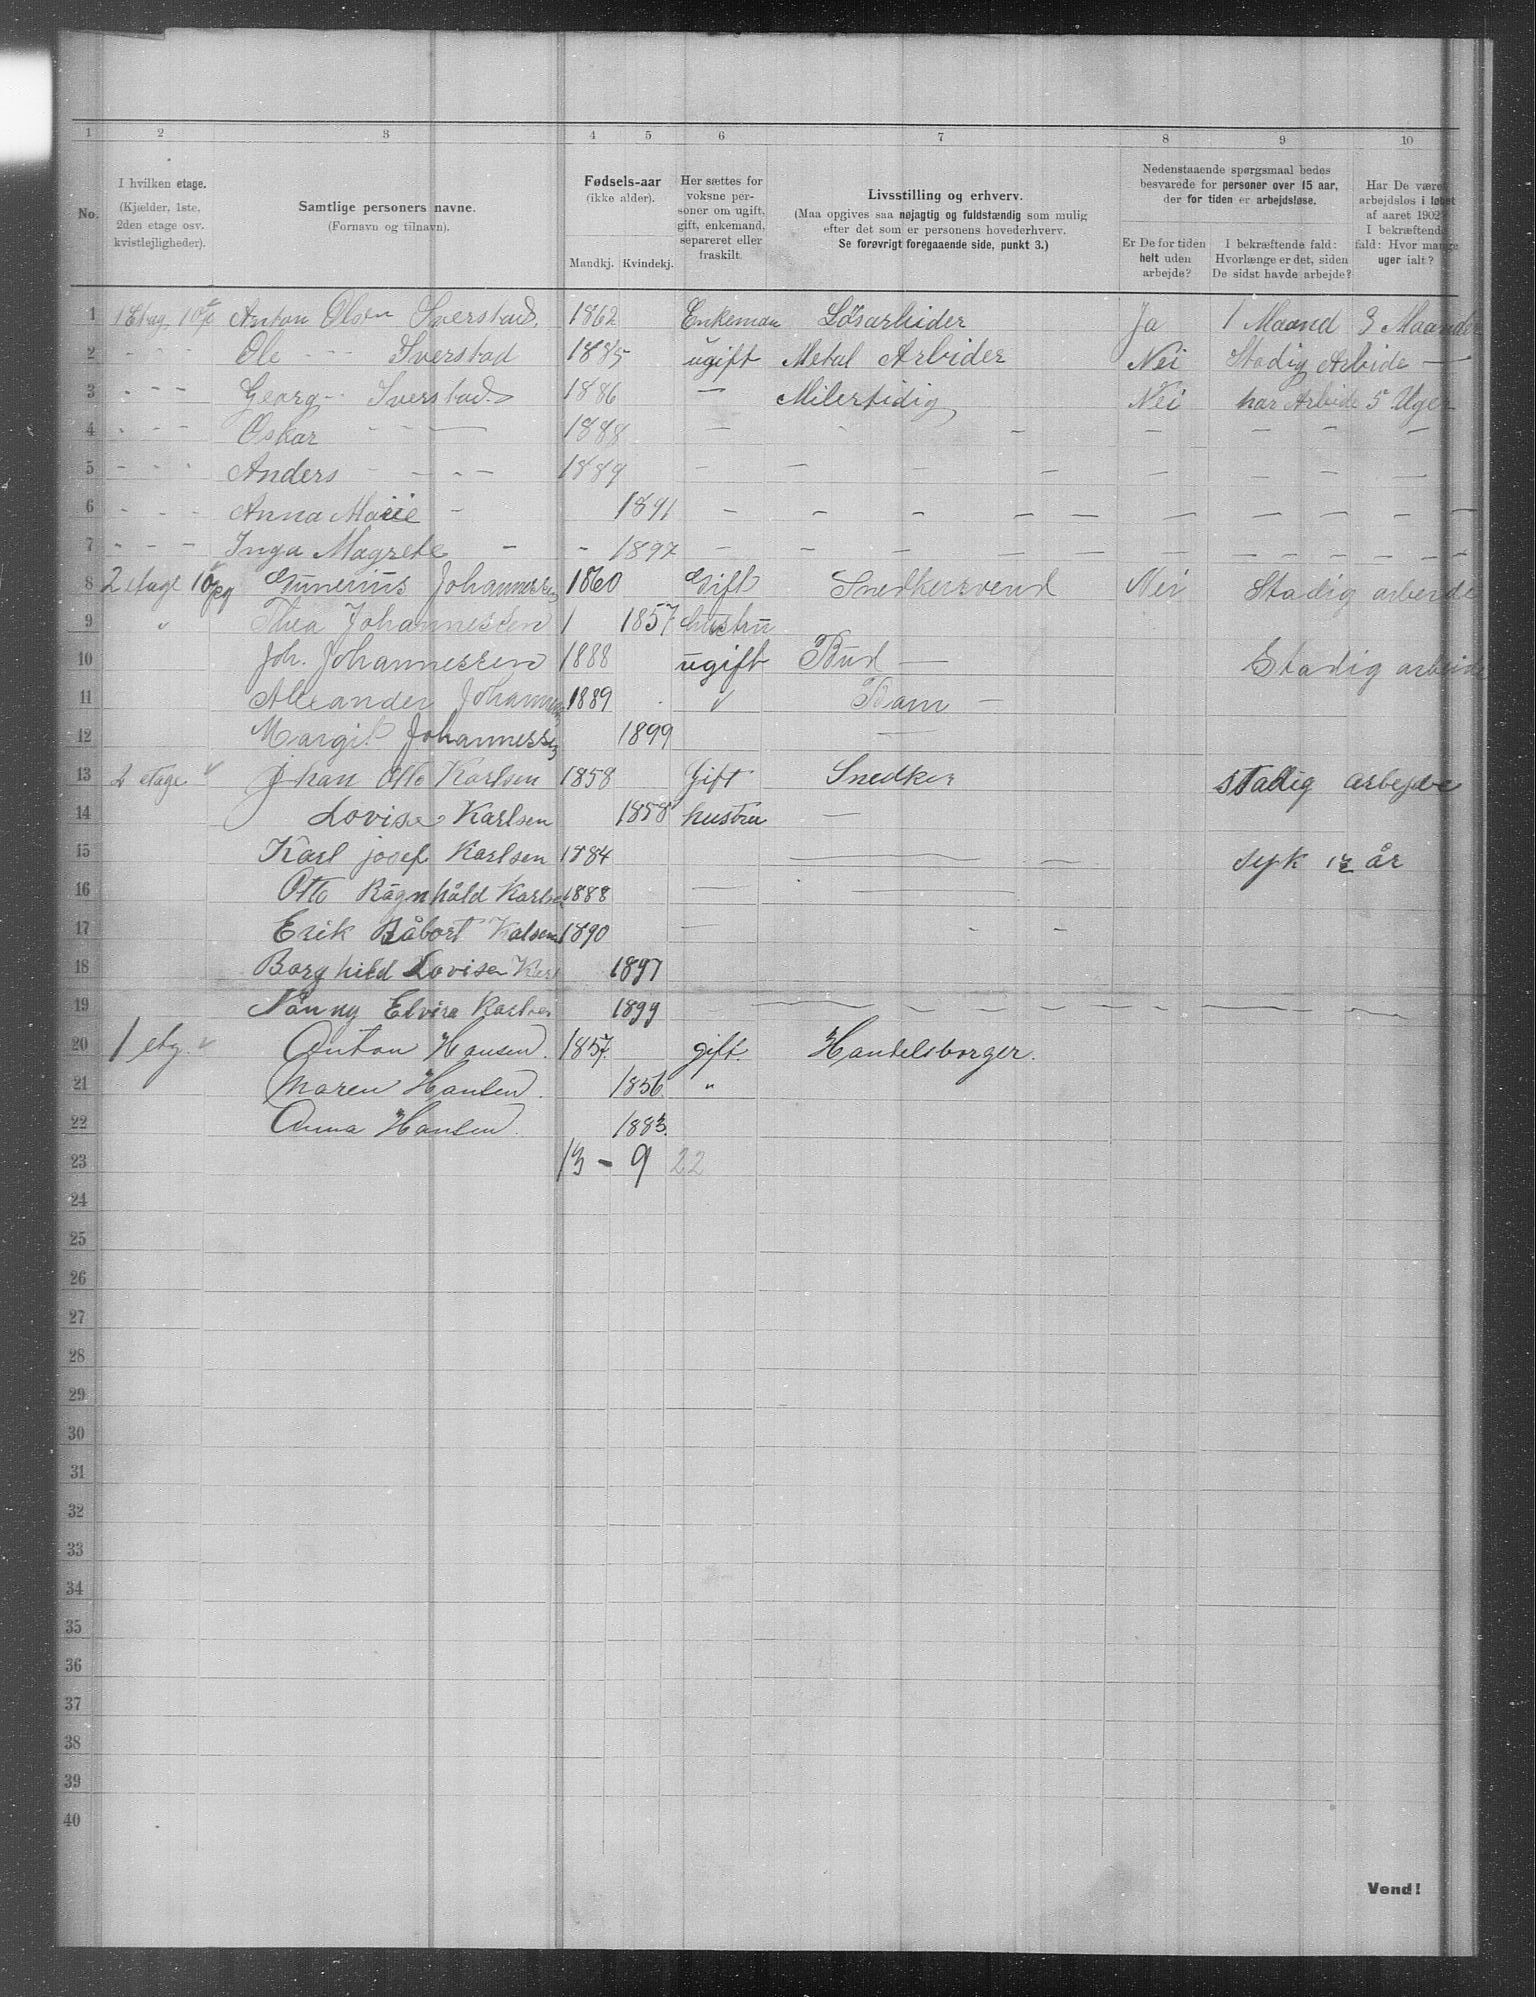 1 2 3 4 5 6 7 8 9 10
No.
I hvilken etage.
(Kjælder, 1ste,
2den etage osv.
kvistlejligheder).
Samtlige personers navne.
(Fornavn og tilnavn).
Fødsels-aar
(ikke alder).
Mandkj. Kvindekj.
Her sættes for
voksne per-
soner om ugift,
gift, enkemand,
separeret eller
fraskilt.
Livsstilling og erhverv.
(Maa opgives saa nøjagtig og fuldstændig som mulig
efter det som er personens hovederhverv.
Se forøvrigt foregaaende side, punkt 3.)
Nedenstaaende spørgsmaal bedes
besvarede for personer over 15 aar,
der for tiden er arbejdsløse.
Er De for tiden
helt uden
arbejde?
I bekræftende fald:
Hvorlænge er det, siden
De sidst havde arbejde?
Har De været
arbejdsløs i løbet
af aaret 1902?
I bekræftende
fald: Hvor mange
uger ialt?
1 1 Etag. Anton Olsen Sverstad. 1862 Enkeman Løsarbeider Ja 1 Maand 3 Maander
2 - - - Ole - - Sverstad 1885 ugift Metal Arbider Nei Stadig Arbide —
3 - - - Georg - - Sverstad 1886 — Milertidig Nei har Arbide 5 Uger
4 - - - Oskar - - - - 1888 — - — — — — —
5 - - - Anders - - - - 1889 — — — — — — —
6 - - - Anna Marie - 1891 — — — — — — — — —
7 - - - Inga Magrete - - 1897 — — — — — — — — —
8 2 etage Gunerius Johannessen 1860 Gift Snedkersvend Nei Stadig arbeide
9 Thea Johannessen 1857 hustru
10 Joh. Johannessen 1888 ugift Bud — Stadig arbeide
11 Alexander Johannes 1889 Barn —
12 Margit Johannessen 1899 —
13 2 etage Johan Otto Karlsen 1858 Gift Snedker stadig arbejde
14 Lovise Karlsen 1858 hustru —
15 Karl josef Karlsen 1884 — — — syk år
16 Otto Rågnhåld Karlsen 1888 — —
17 Erik Råbort Kalsen 1890 — - -
18 Borghild Lovise Karl 1897
19 Nånny Elvira Karlsen 1899
20 1 etg. Anton Hansen. 1857 gift. Handelsborger.
21 Maren Hansen. 1856. "
22 Anna Hansen. 1883.
23 13 - 9 22
24
25
26
27
28
29
30
31
32
33
34
35
36
37
38
39
40
Vend!